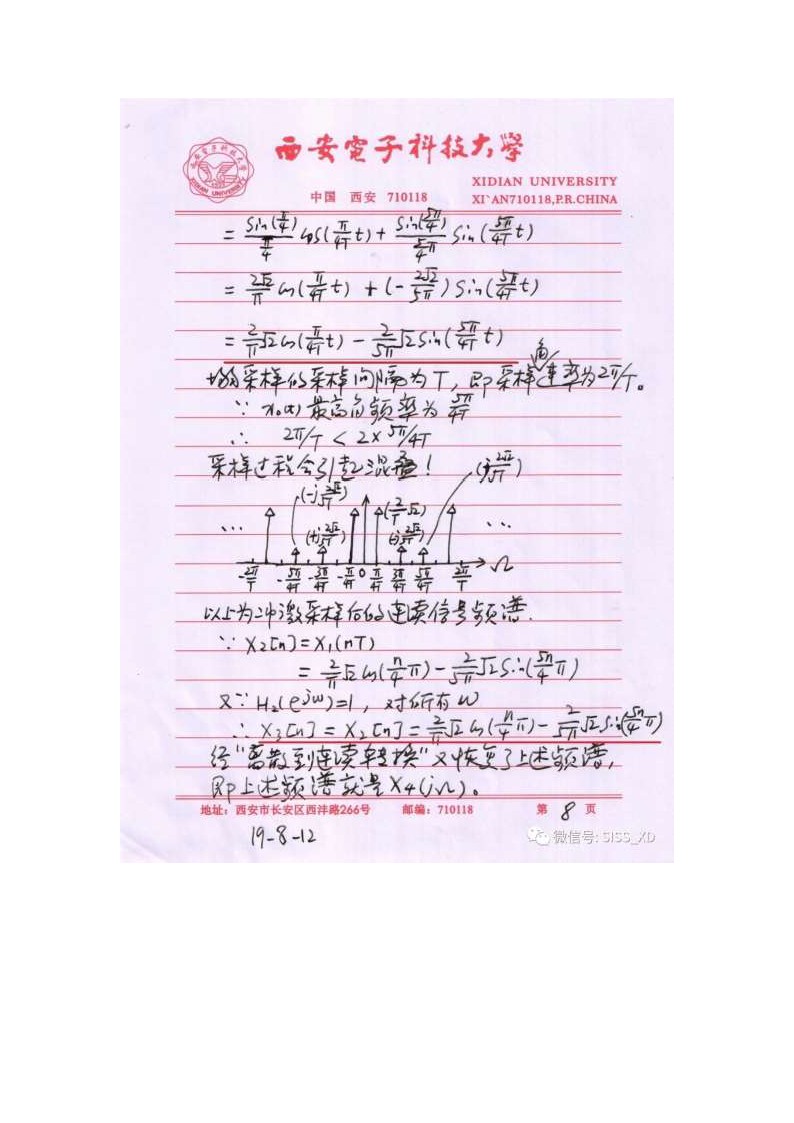 西安電子科技大學
XIDIAN UNIVERSITY
中国 西安 710118
XI`AN710118,P.R.CHINA
= sin(π/4)/(π/4) cos(π/4T t) + sin(5π/4)/(5π/4) sin(5π/4T t)
= 2√2/π cos(π/4T t) + (-2√2/5π) sin(5π/4T t)
= 2/π √2 cos(π/4T t) - 2/5π √2 sin(5π/4T t)
采样的采样间隔为T, 即采样角速率为2π/T。
∵ 最高角频率为 5π/4T
∴ 2π/T < 2× 5π/4T
采样过程会引起混叠!
... ...
-2π/T -5π/4T -3π/4T -π/4T 0 π/4T 3π/4T 5π/4T 2π/T Ω
以上为冲激采样后的连续信号频谱.
∵ X2[n] = X1(nT)
= 2/π √2 cos(n/4 π) - 2/5π √2 sin(5n/4 π)
又∵ H2(e^jω)=1, 对所有ω
∴ X3[n] = X2[n] = 2/π √2 cos(n/4 π) - 2/5π √2 sin(5n/4 π)
经"离散到连续转换"又恢复了上述频谱,
即上述频谱就是X4(jΩ)。
地址: 西安市长安区西沣路266号 邮编: 710118 第 8 页
19-8-12
微信号: SISS_XD